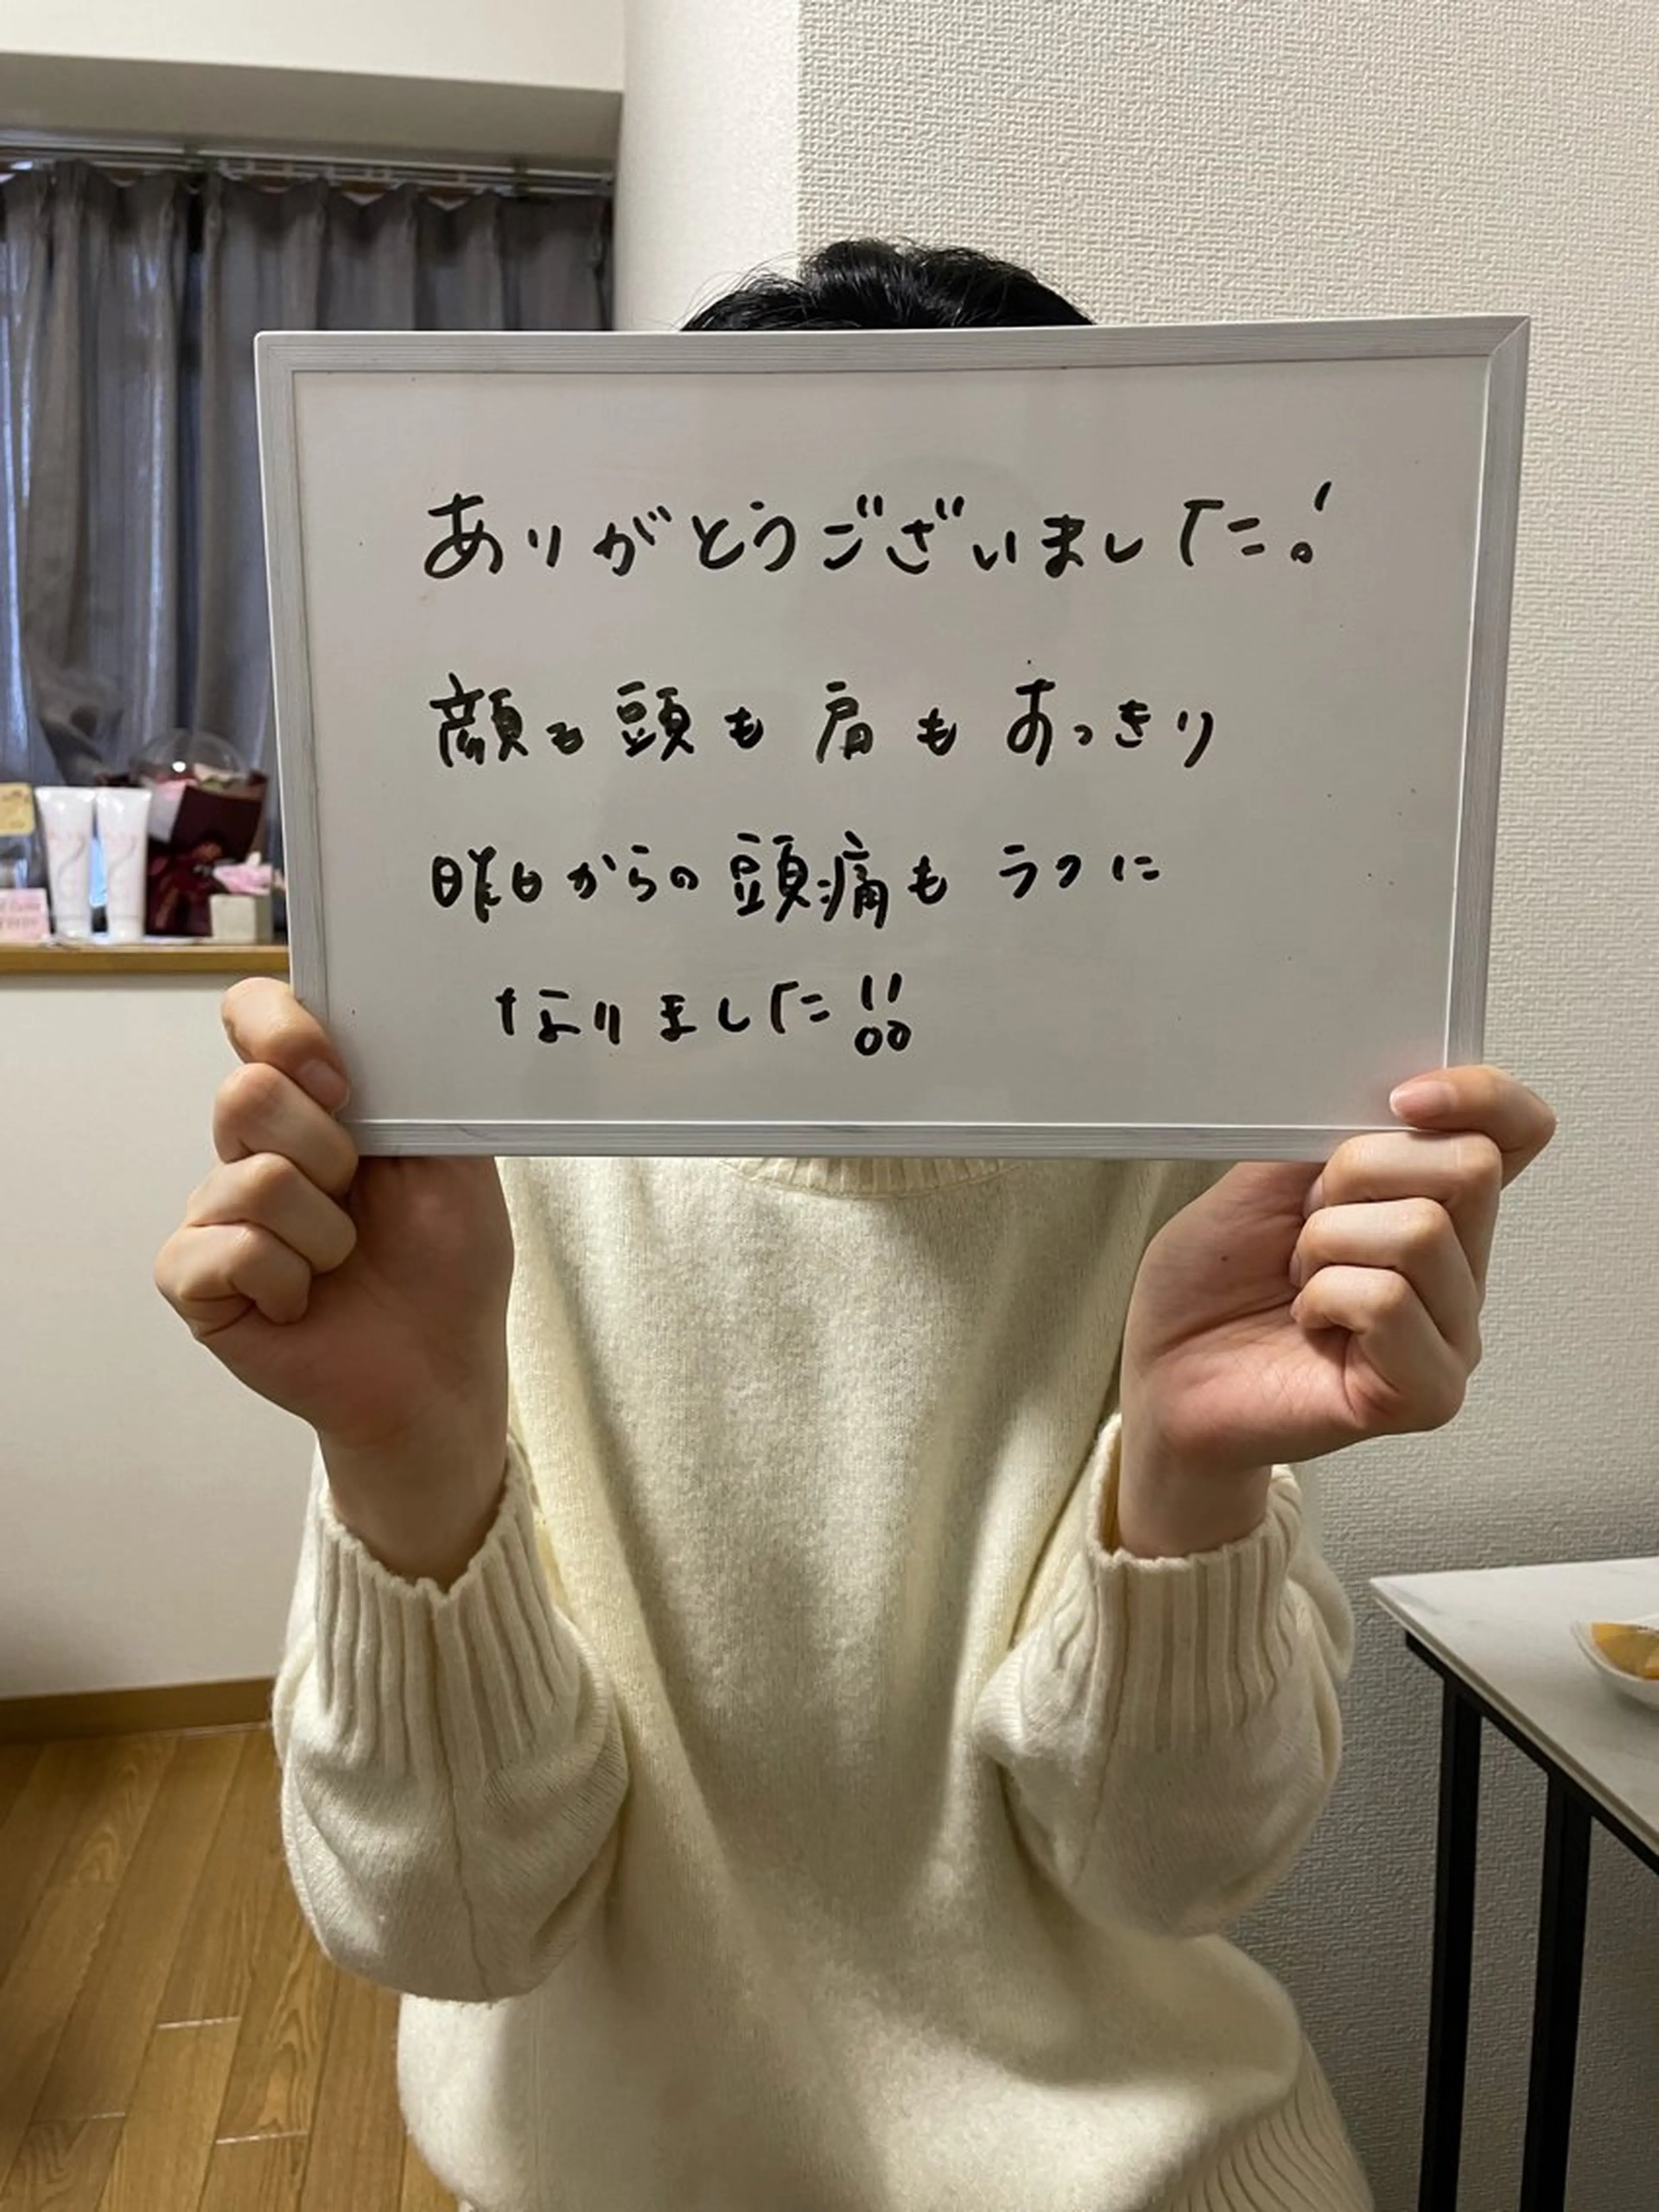 ありがとうございました!
顔も頭も肩もすっきり
昨日からの頭痛もラクに
なりました!!